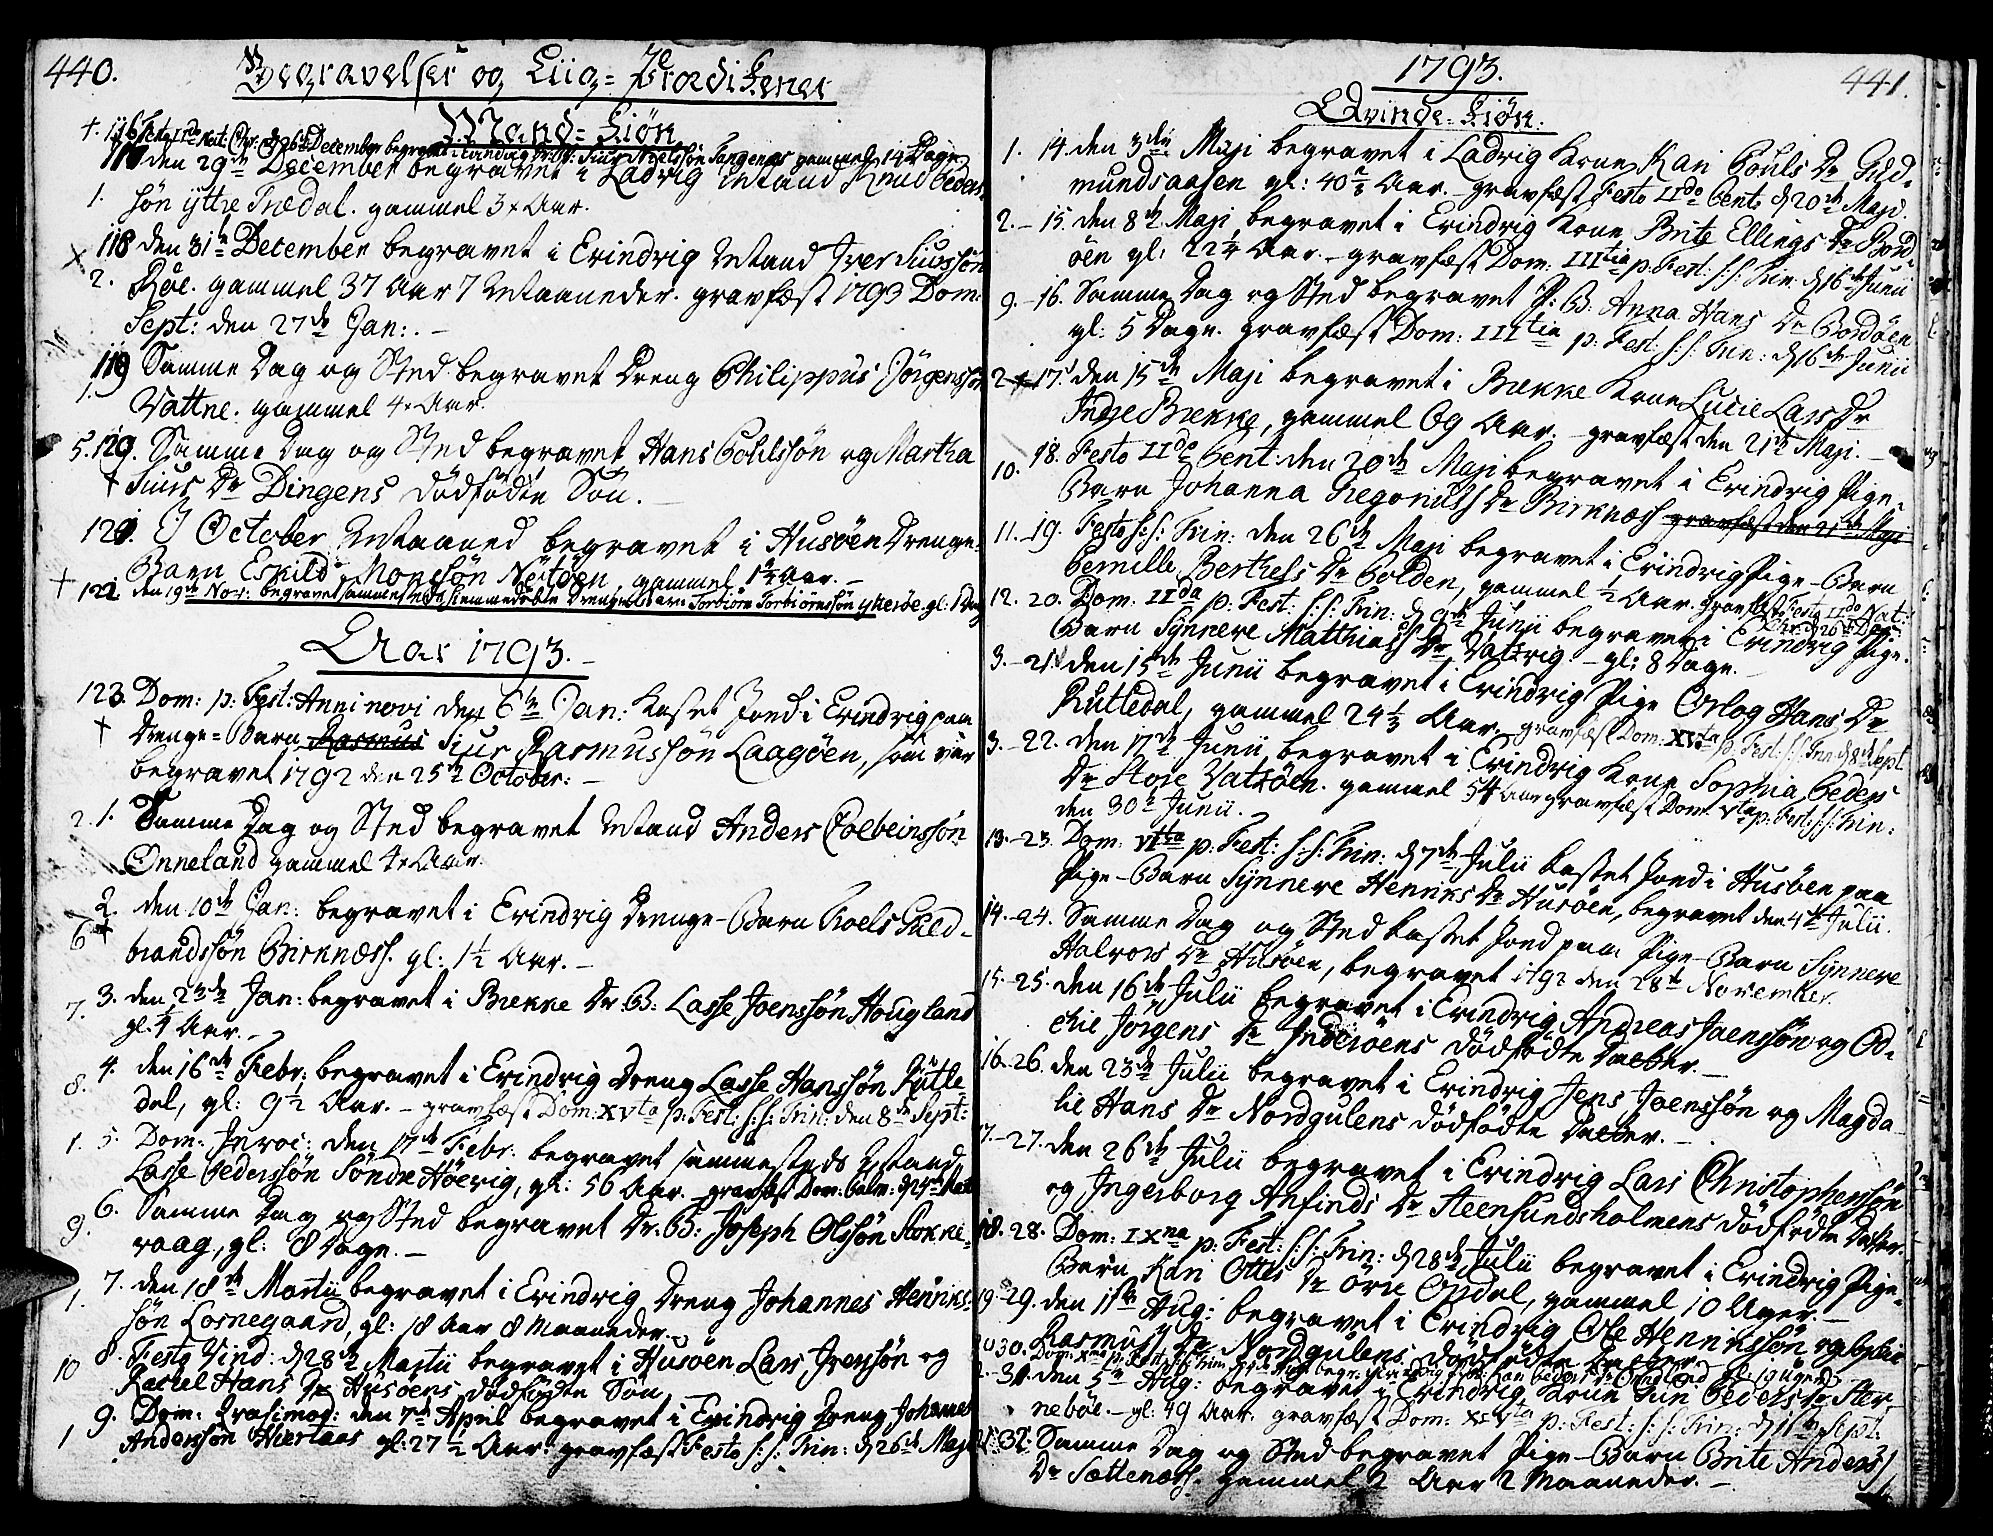 440.
Begravelser og Liig-Prædikener
Mand-Kiøn
+. 116 Festo IIdo Nat: Chr: d 26 December begravet i Erindrig Dr: B: Siur Nielssøn Tangenæs gammel 14 Dage
117 den 29de December begravet i Ladvig Mand Knud Peders
1. søn yttre Trædal. gammel 3 Aar.
118 den 31te December begravet i Erindrig Mand Iver Siurssøn
2. Røe. gammel 37 Aar 7 Maaneder. gravfæst 1793 Dom:
Sept: den 27de Jan: . –
119 Samme Dag og Sted begravet Dreng Philippus Jørgenssøn
1. Vattne. gammel 4 Aar.
5. 120. Samme Dag og Sted begravet Hans Pohlssøn og Martha
+ Siurs Dr Dingens dødfødte Søn. –
121. I October Maaned begravet i Husøen Drenge-
Barn Eskild Monssøn Nøtøen, gammel 1½ Aar. –
+ 122 den 19de Nov: begravet sammesteds hiemmedøbte Drengebarn Torbiørn Torbiørnssøn Ytrøe. gl: 1 Dag
Aar 1793. –
123. Dom: p: Fest: Anni novi den 6te Jan: kastet Jord i Erindrig paa
+ Drenge-Barn Rasmus Siur Rasmussøn Laagøen, som var
begravet 1792 den 25de October. –
2. 1. Samme Dag og Sted begravet Mand Anders Colbeinssøn
Ønneland gammel 4 Aar.
2. den 10de Jan: begravet i Erindrig Drenge-Barn Roels Guld-
6 + brandssøn Birknæss. gl: 1½ Aar. –
7. 3. den 23de Jan: begravet i Brekke Dr. B: Lasse Joenssøn Hougland
gl. 4 Aar. –
8. 4. den 16de Febr: begravet i Erindrig Dreng Lasse Hanssøn Rutle
dal, gl: 9½ Aar. – gravfæst Dom: XVta p: Fest: s:s: Trin: den 8de Sept:
1. 5. Dom: Invoc: den 17de Febr. begravet sammesteds Mand
Lasse Pederssøn Søndre Høevig, gl: 56 Aar. gravfæst Dom: Palm: d 24de Martii
9. 6. Samme Dag og Sted begravet Dr. B: Joseph Olssøn Rokke-
vaag, gl: 8 Dage. –
1. 7. den 18de Martii begravet i Erindrig Dreng Johannes Henriks
søn Losnegaard, gl: 18 Aar 8 Maaneder. –
10 8. Festo Vind: d 28de Martii begravet i Husøen Lars Iverssøn og
Rachel Hans Dr Husøens dødfødte Søn
1 9. Dom: Qvasimod: den 7de April begravet i Erindrig Dreng Johannes
Anderssøn Hiertaas gl: 27½ Aar. gravfæst Festo s:s: Trin: d 26de Maji
1793.
441.
Qvinde-Kiøn.
1. 14. den 3die Maji begravet i Ladvig Kone Kari Pouls Dr Gud-
mundsaasen gl: 40½ Aar. – gravfæst Festo IIdo Pent: d 20de Maji.
2. – 15. den 8de Maji begravet i Erindrig Kone Brite Ellings Dr Bord-
øen gl: 22¼ Aar. – gravfæst Dom: IIItia p: Fest: s:s: Trin: d 16de Junii
9. – 16. Samme Dag og Sted begravet P: B: Anna Hans Dr Bordøen
gl: 5 Dage. gravfæst Dom: IIItia p: Fest: s:s: Trin: d 16de Junii
2 17. den 15de Maji begravet i Brekke Kone Lucie Lars Dr
Indre Brekke, gammel 69 Aar. – gravfæst den 21de Maji. –
10. 18. Festo IIdo Pent: den 20de Maji begravet i Erindrig Pige-
Barn Johanna Gregorius Dr Birknæss gravfæst den 21de Maji
11. – 19. Festo s:s: Trin: den 26de Maji begravet i Erindrig Pige-Barn
Pernille Berthels Dr Polden, gammel ½ Aar. gravfæst Festo IIdo Nat:
Chr: d 26de Dec:
12. 20. Dom: IIda p: Fest: s:s: Trin: d 9de Junii begravet i Erindrig Pige-
Barn Synneve Matthias Dr Vatsvig. – gl: 8 Dage.
3. – 21. den 15de Junii begravet i Erindrig Pige Orlog Hans Dr
Ruttedal, gammel 24⅓ Aar. gravfæst Dom: XVta p: Fest: s:s: Trin: d 8de Sept
3. – 22. den 17de Junii begravet i Erindrig Kone Sophia Peders
Dr Store Vatsøen. gammel 54 Aar gravfæst Dom: Vta p: Fest: s:s: Trin:
den 30te Junii.
13. – 23. Dom: VIta p: Fest: s:s: Trin: d 7de Julii kastet Jord i Husøen paa
Pige-Barn Synneve Henriks Dr Husøen, begravet den 4de Julii.
14. – 24. Samme Dag og Sted kastet Jord paa Pige-Barn Synneve
Halvors Dr Husøen, begravet 1792 den 28de November.
15. – 25. den 16de Julii begravet i Erindrig Andreas Joenssøn og Od-
elie Jørgens Dr Inderøens dødfødte Datter. –
16. – 26. den 23de Julii begravet i Erindrig Jens Joenssøn og Magda
lie Hans Dr Nordgulens dødfødte Datter. –
17. – 27. den 26de Julii begravet i Erindrig Lars Christopherssøn
og Ingerborg Anfinds Dr Steensundsholmens dødfødte Datter.
18. 28. Dom: IXna p: Fest: s:s: Trin: d 28de Julii begravet i Erindrig Pige-
Barn Kari Ottes Dr Øvre Opdal, gammel 10 Uger. –
19 – 29. den 1ste Aug: begravet i Erindrig Ole Henrikssøn og
Rasmus Dr Nordgulens dødfødte Datter
20 30. Dom: Xma p: Fest: s:s: Trin:
31. den 5te Aug: begravet i Erindrig Kone Peders Dr Ster-
nebøe. – gl: 49 Aar. gravfæst Dom: p: Fest: s:s: Trin: Sept:
32. Samme Dag og Sted begravet Pige-Barn Brite Anders
Dr Sættenæss. gammel 2 Aar 2 Maaneder. –